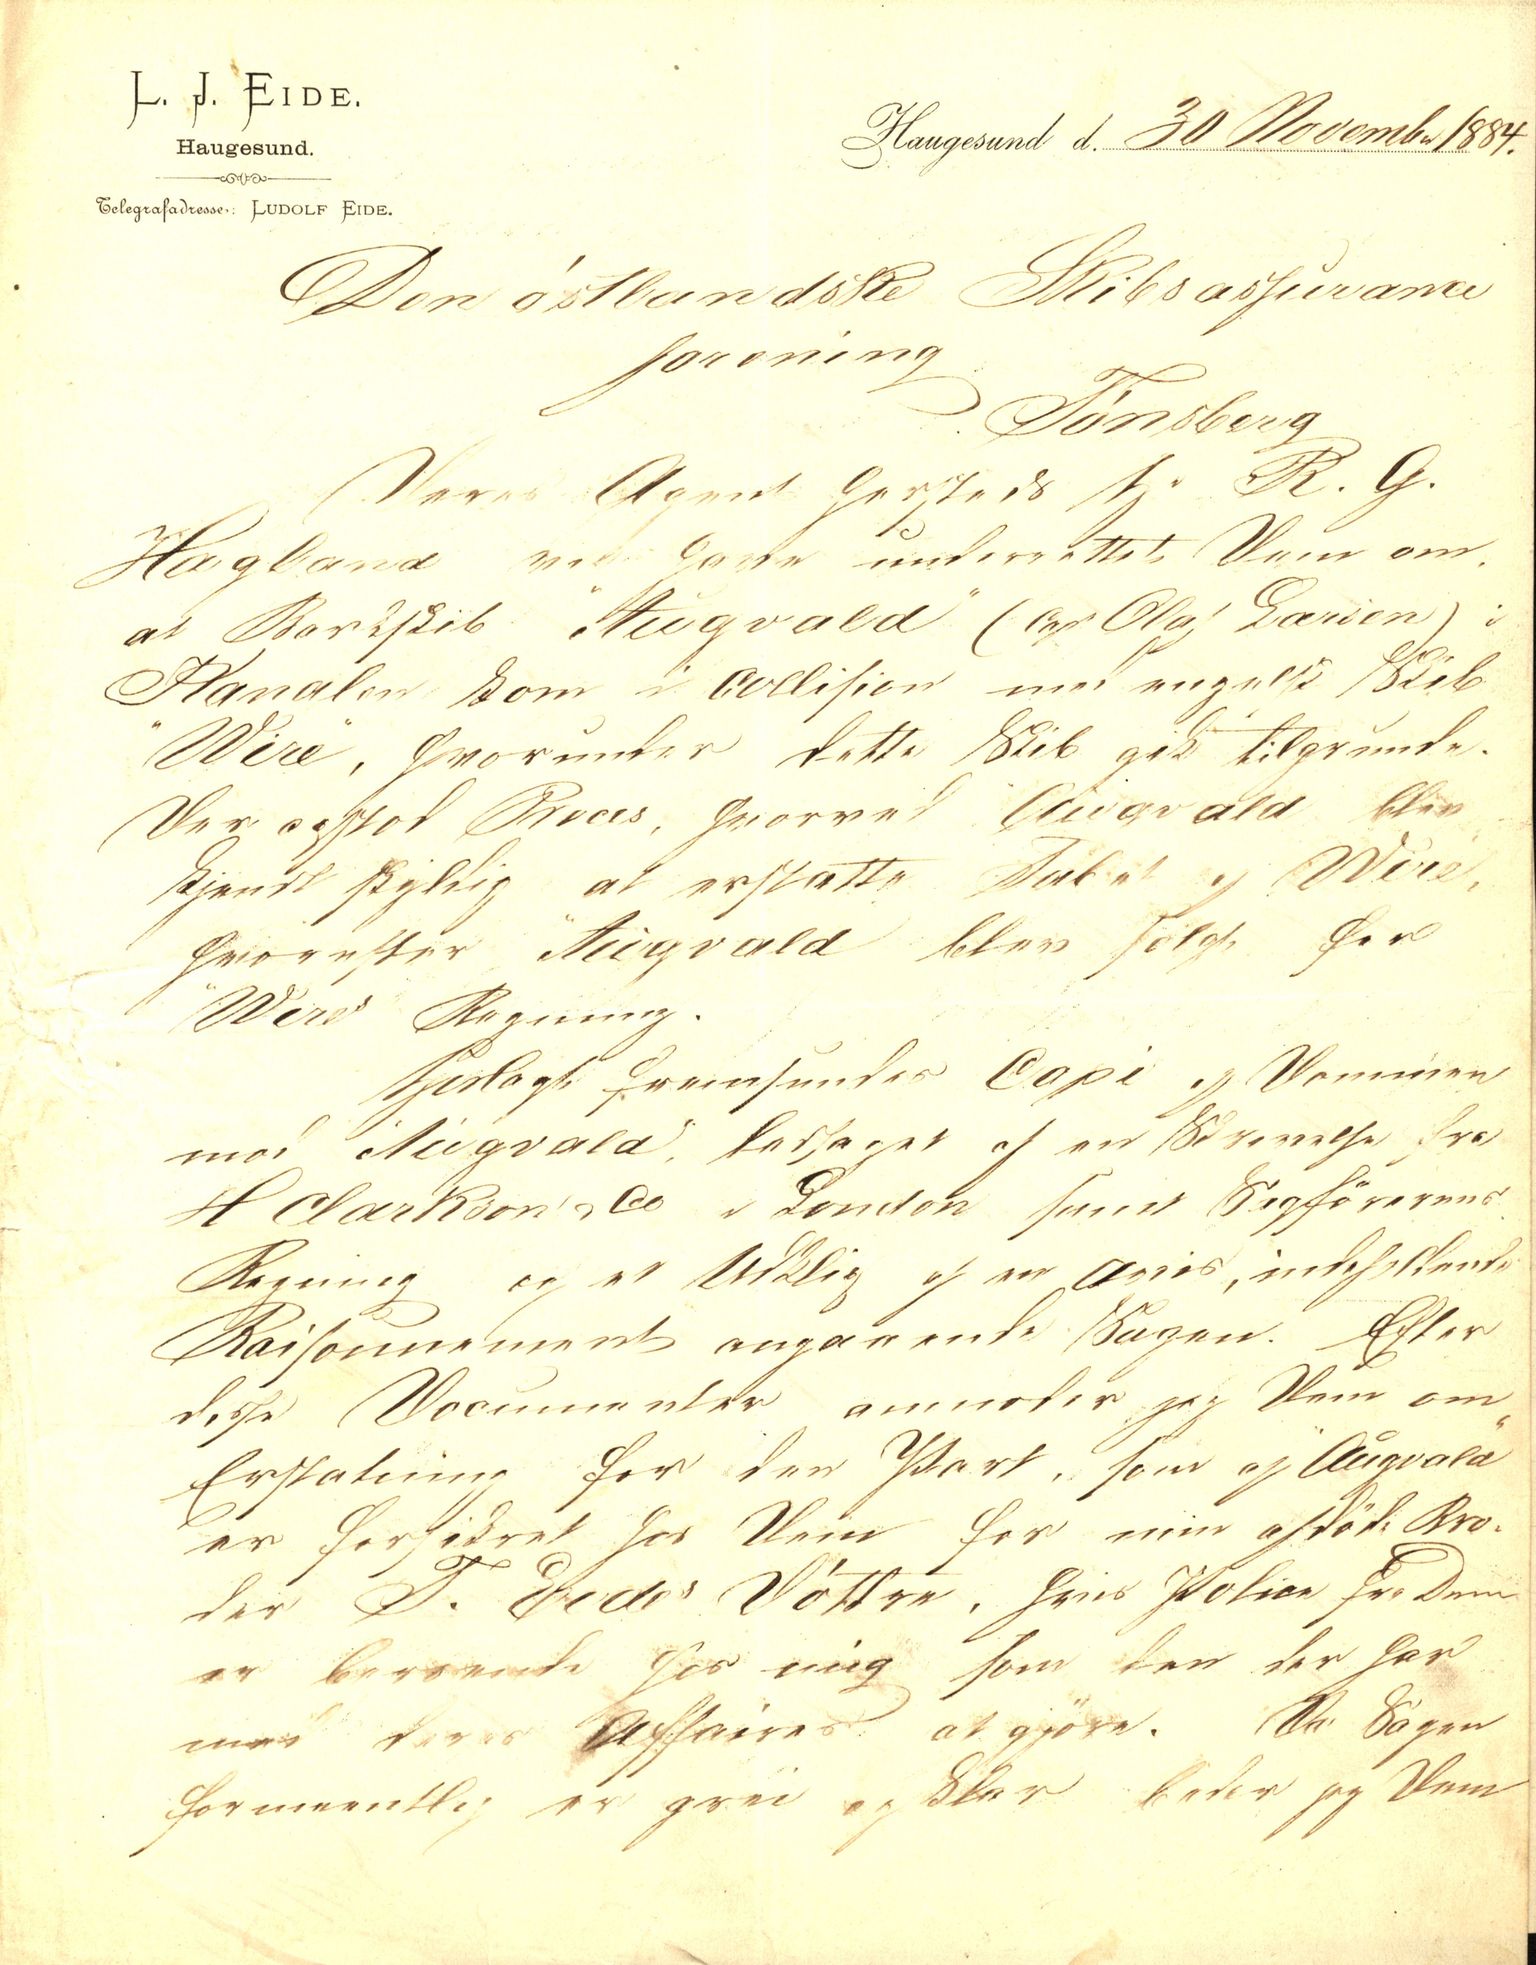 L. J. EIDE.
Haugesund.
Telegrafadresse: LUDOLF EIDE.
Haugesund d. 30 November 1884.
Den östlandske Skibsassurance
forening
Tönsberg
Deres Agent hersteds Hr R. G.
Hagland vil have underrettet Dem om,
at Barkskib "Augvald" (Cpt Olaf Larsen) i
Kanalen kom i Collision med engelsk Skib
"Wire", hvorunder dette Skib gik tilgrunde.
Der opstod Proces, hvorved "Augvald" blev
kjendt skyldig at erstatte Tabet af "Wire",
hvorefter "Augvald" blev solgt for
"Wires" Regning.
Hoslagt fremsendes Copi af Dommen
mod "Augvald", ledsaget af en Skrivelse fra
H Clarkson & Co i London samt Sagförerens
Regning og et Udklip af en Avis, indeholdende
Raisonnement angaaende Sagen. Efter
disse Documenter anmoder jeg Dem om
Erstatning for den Part, som af "Augvald"
er forsikret hos Dem for min afdöde Bro-
der T. Eides Döttre, hvis Police fra Dem
er beroende hos mig som den der har
med deres Affaires at gjöre. Da Sagen
formeentlig er grei og klar beder jeg Dem